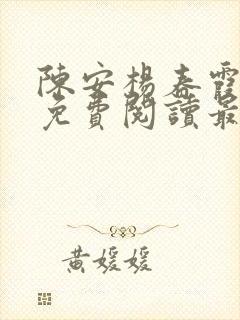 陳安楊春霞
免費閱讀最
黃媛媛